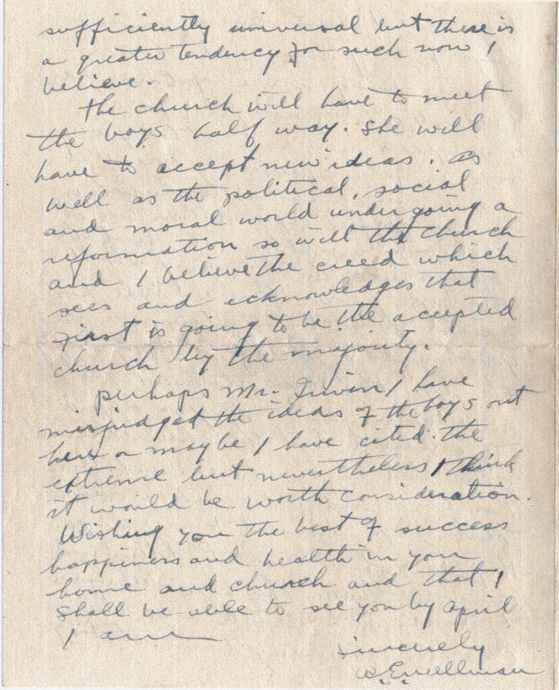 sufficiently universal but there is
a greater tendency for such now I
believe.
The church will have to meet
the boys half way. She will
have to accept new ideas. as
well as the political, social
and moral world undergoing a
reformation so will the church
and I believe the creed which
sees and acknowledges that
first is going to be the accepted
church by the majority.
Perhaps Mr. Irwin I have
misjudged the ideas of the boys out
here or maybe I have cited the
extreme but nevertheless I think
it would be worth consideration.
Wishing you the best of success
happiness and health in your
home and church and that I
shall be able to see you by April
I am
Sincerely
Wellman